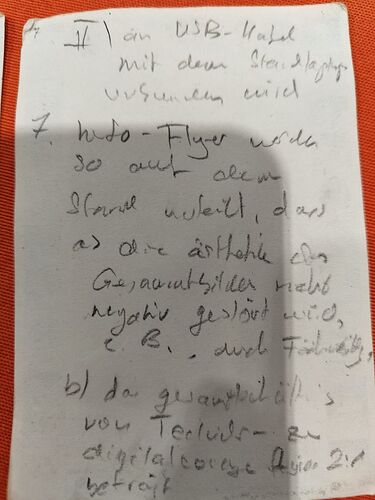 II) an USB-Kabel
mit dem Standlaptop
verbunden wird
7. Info-Flyer werden
so auf dem
Stand verteilt, dass
a) die ästhetik des
Gesamtbildes nicht
negativ gestört wird,
z.B. durch
b) das gesamtverhältnis
von Technik- zu
digitalcourage Flyer 2:1
beträgt